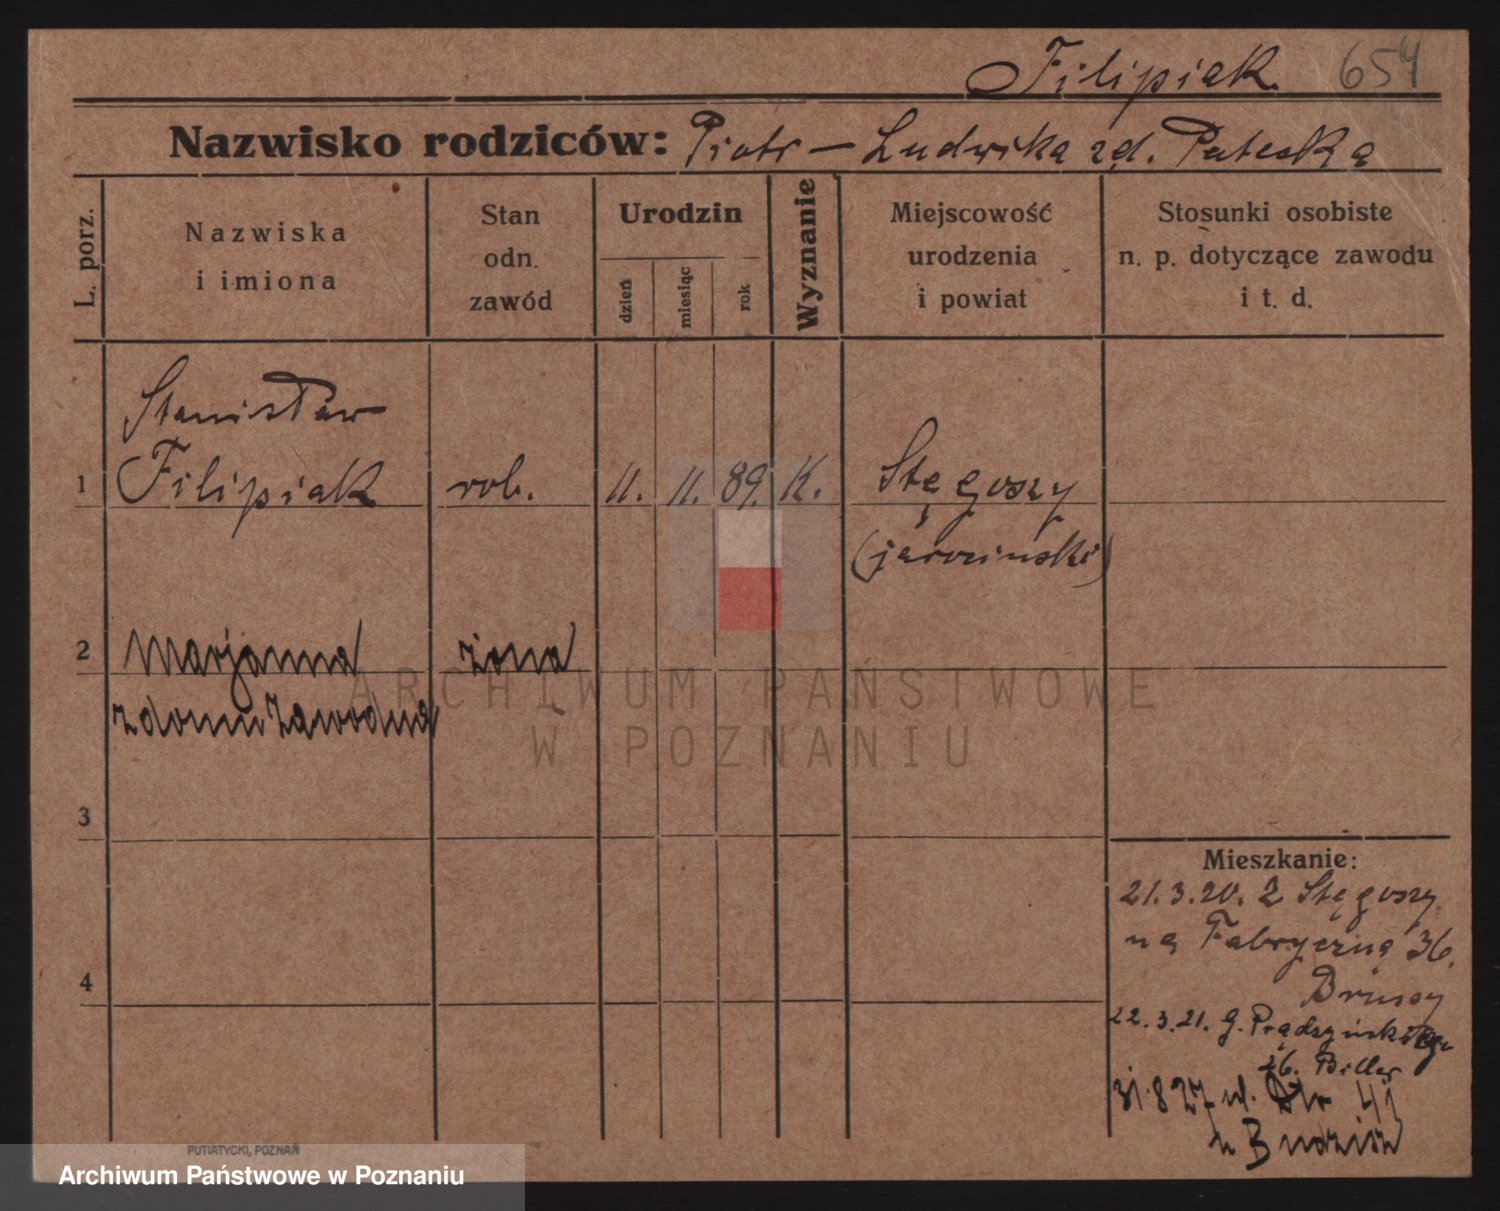 Filipiak 654
Nazwisko rodziców: Piotr – Ludwika zd. Pateska
L. porz.
Nazwiska
i imiona
Stan
odn.
zawód
Urodzin
dzień
miesiąc
rok
Wyznanie
Miejscowość
urodzenia
i powiat
Stosunki osobiste
n. p. dotyczące zawodu
i t. d.
Stanisław
1 Filipiak rob. 11. 11. 89. K. Stęgoszy
(jarocinski)
2 Marjanna żona
z domu Zawodna
3
4
Mieszkanie:
21.3.20. Z Stęgoszy
na Fabryczną 36.
Brussy
22.3.21. G. Prądzyńskiego
26. Biller
31.8 27 ul. 41
u Budzisz
ARCHIWUM PAŃSTWOWE
W POZNANIU
PUTIATYCKI, POZNAŃ
Archiwum Państwowe w Poznaniu